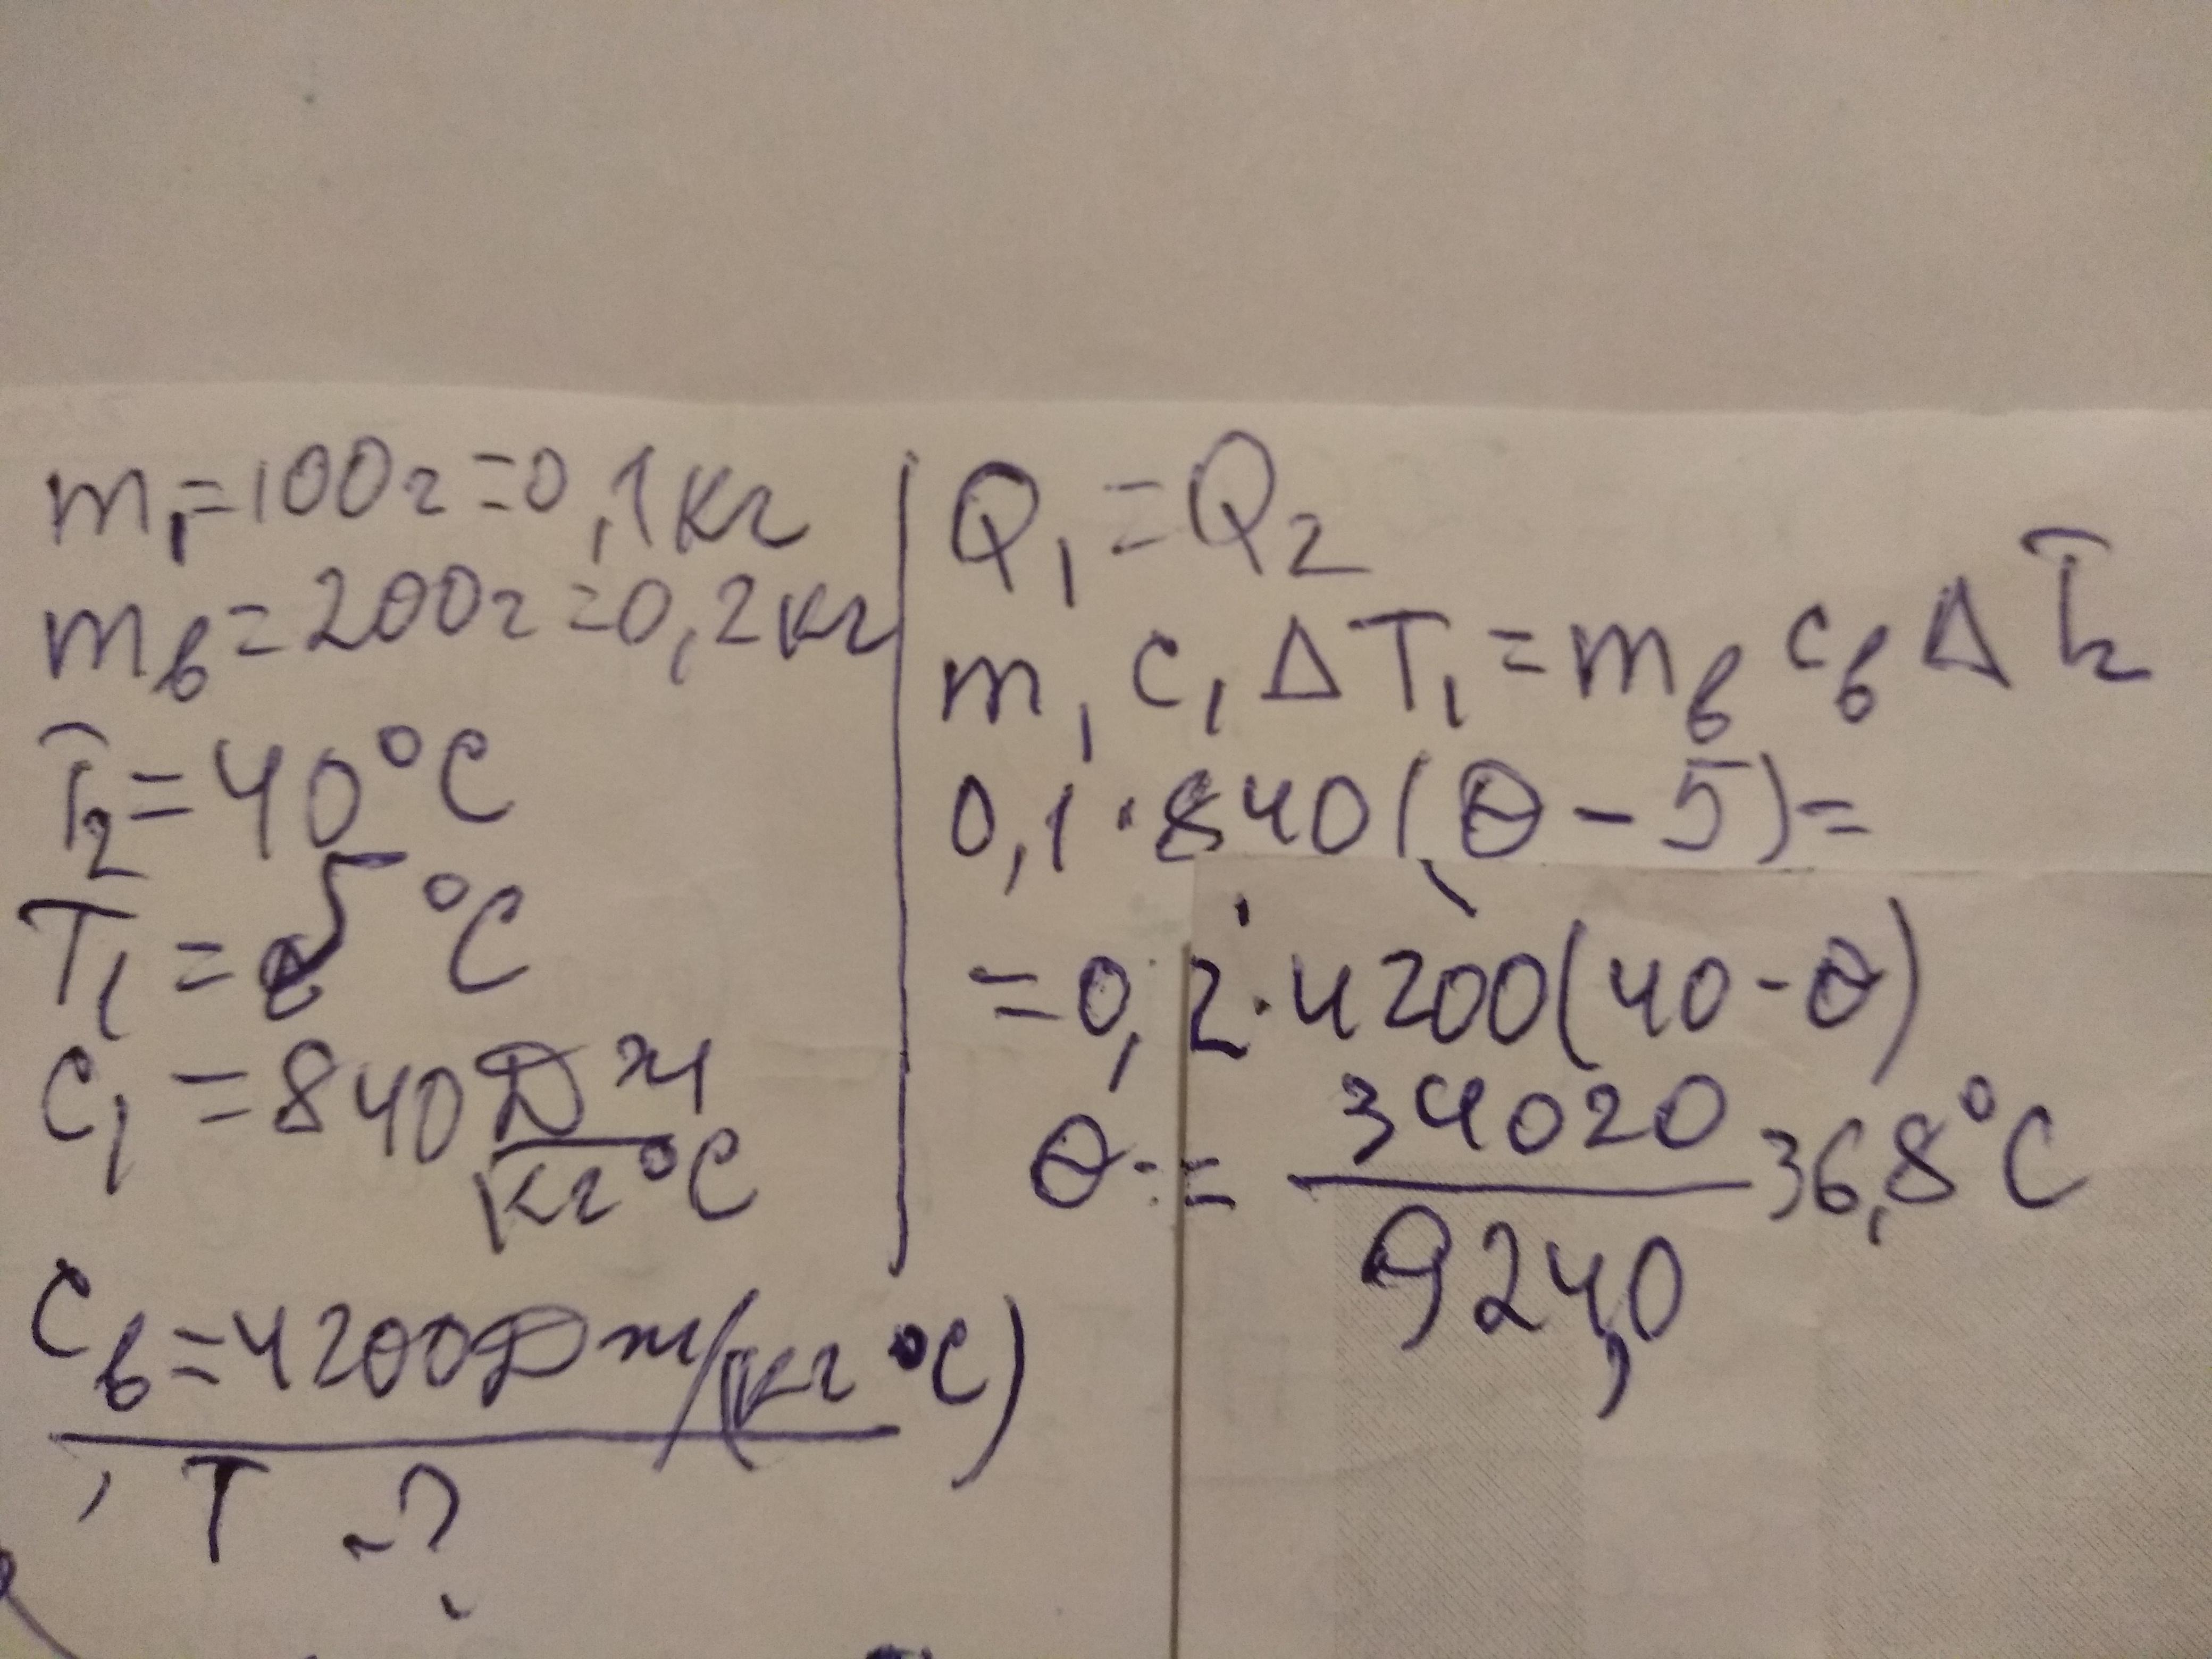 m₁=100г=0,1кг
mв=200г=0,2кг
T₂=40°C
T₁=5°C
C₁=840 Дж
кг°C
Cв=4200Дж/(кг°C)
T -?
Q₁=Q₂
m₁c₁ΔT₁=mвcвΔT₂
0,1·840(θ-5)=
=0,2·4200(40-θ)
θ= 34020 36,8°C
924,0